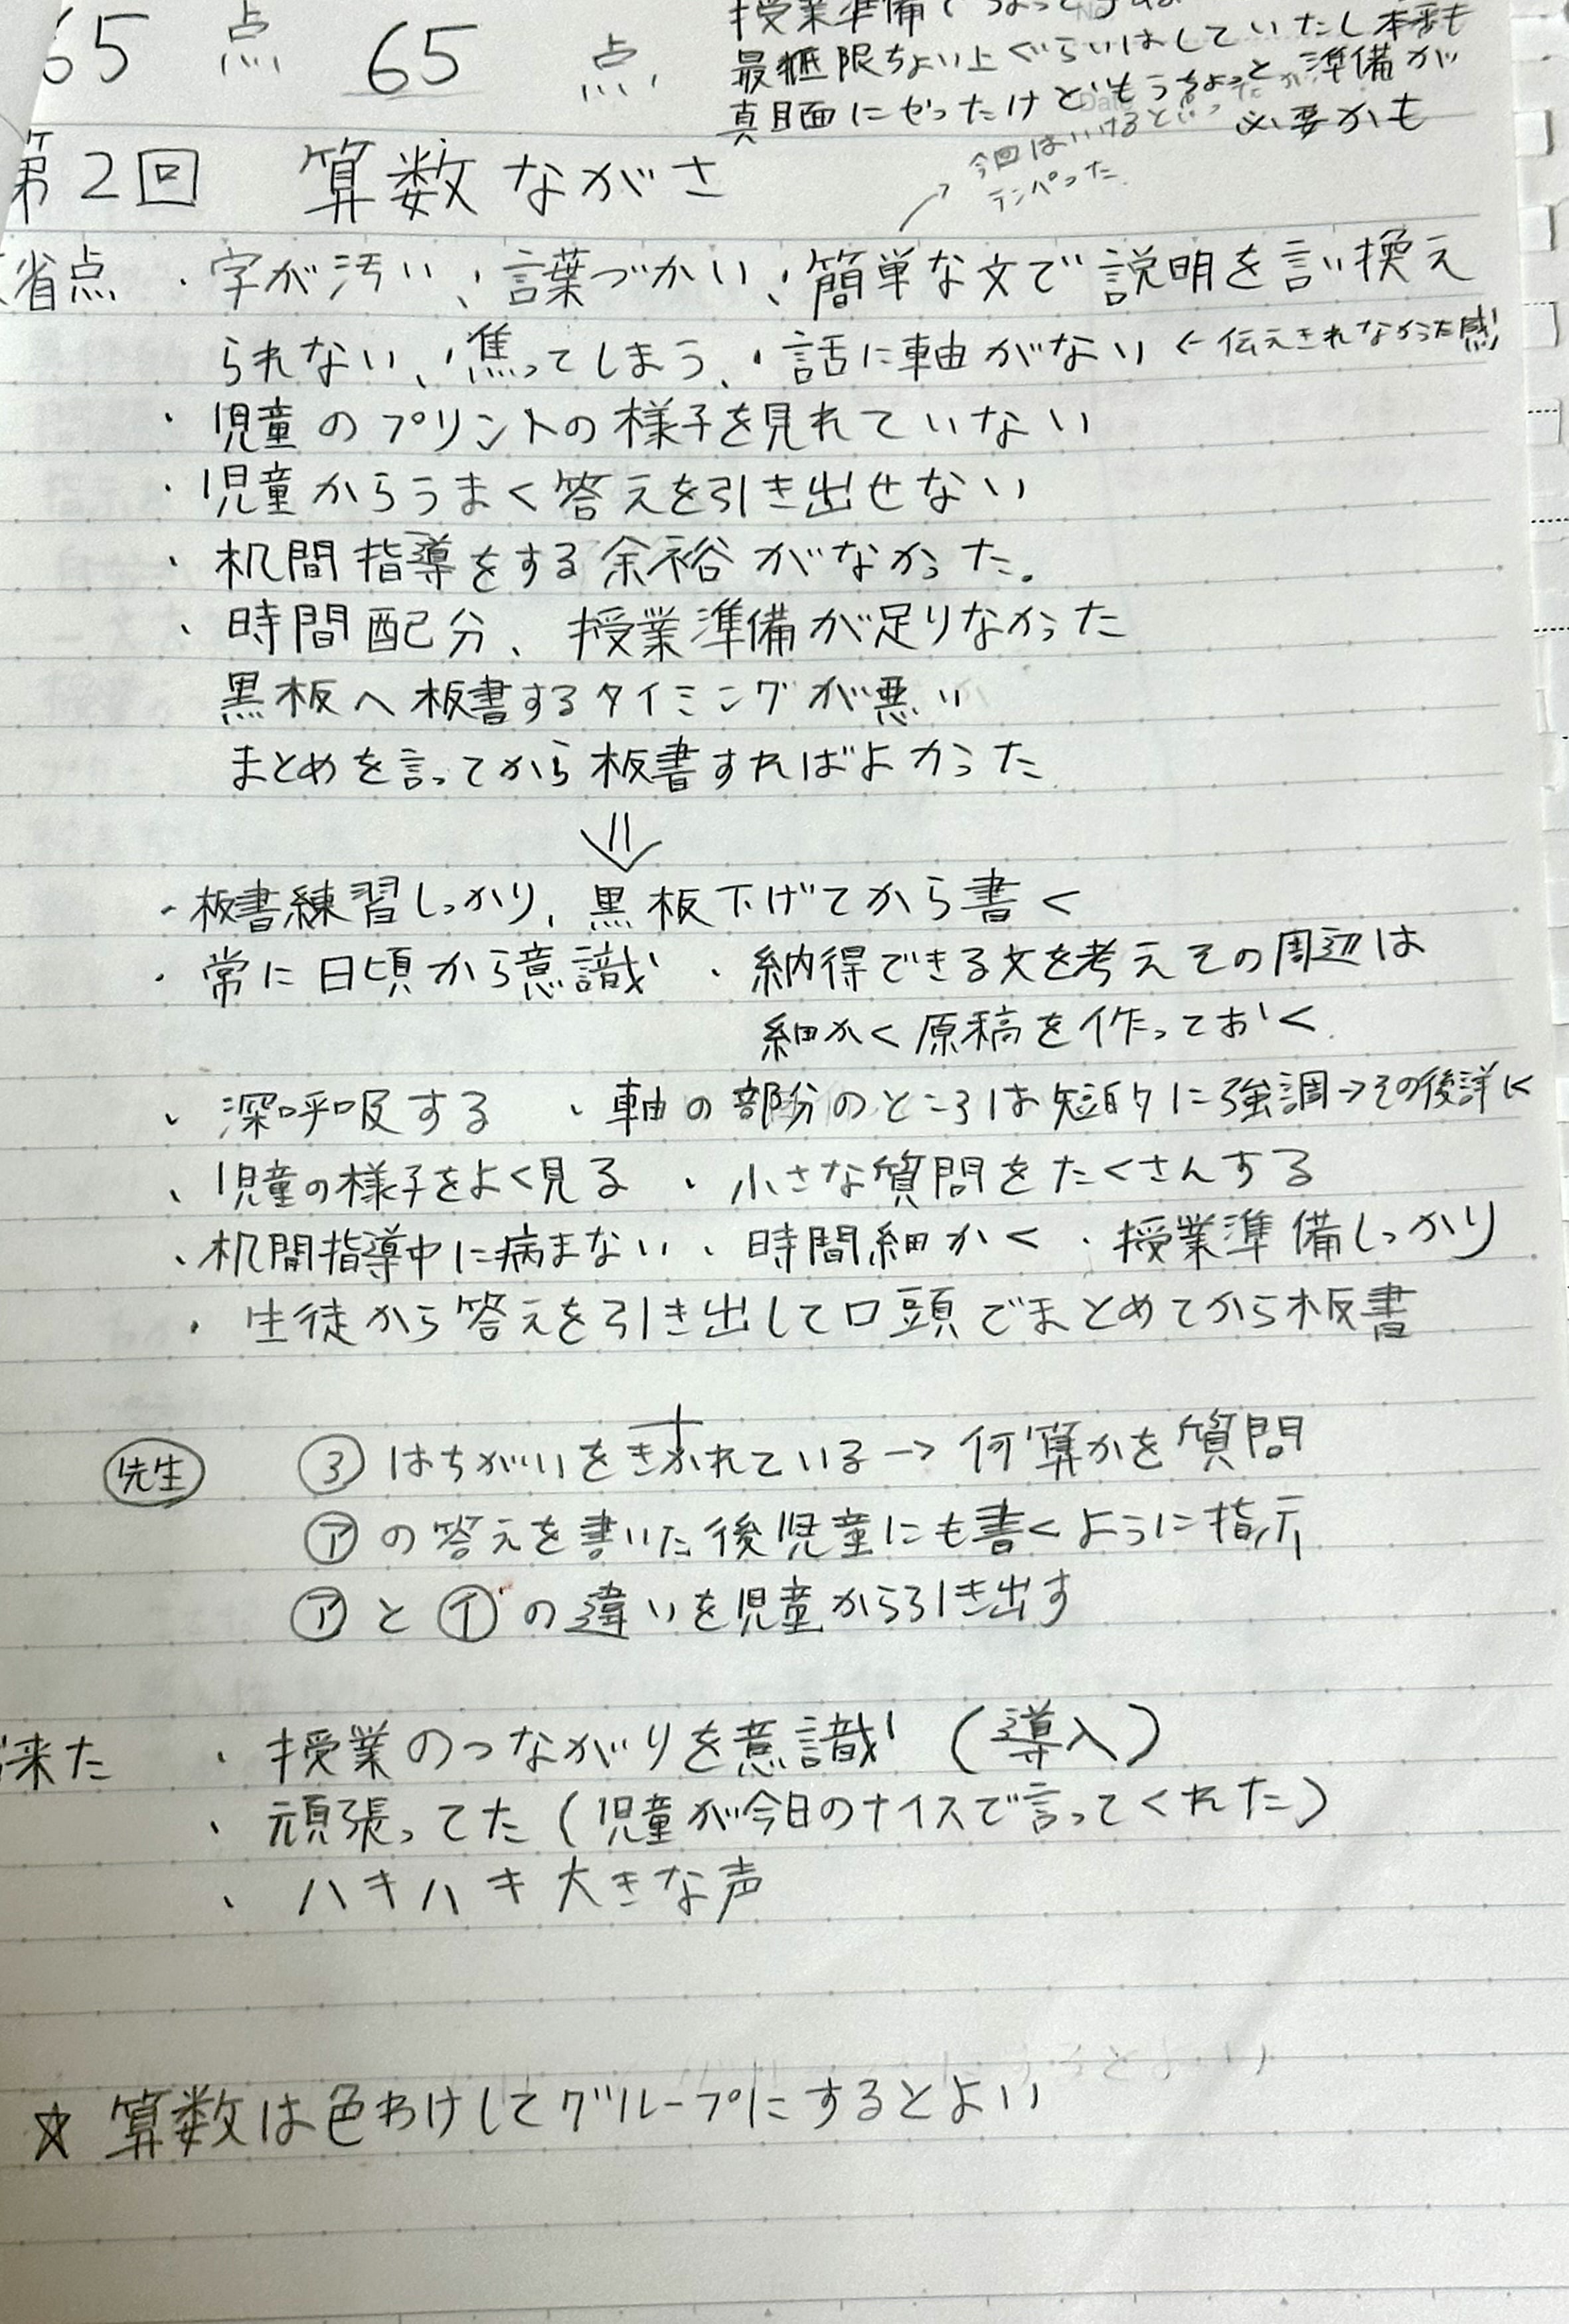 65点 65点
授業準備
最低限ちょい上ぐらいはしていたし本番も
真面目にやったけどもうちょっと準備が
必要かも
今回はいけると
テンパった
第2回 算数ながさ
省点 ・字が汚い、・言葉づかい、・簡単な文で説明を言い換え
られない、・焦ってしまう、・話に軸がない ← 伝えきれなかった感
・児童のプリントの様子を見れていない
・児童からうまく答えを引き出せない
・机間指導をする余裕がなかった。
・時間配分、授業準備が足りなかった
黒板へ板書するタイミングが悪い
まとめを言ってから板書すればよかった
⇓
・板書練習しっかり、黒板下げてから書く
・常に日頃から意識 ・納得できる文を考えその周辺は
細かく原稿を作っておく
・深呼吸する ・軸の部分のところは短的に強調→その後詳しく
・児童の様子をよく見る ・小さな質問をたくさんする
・机間指導中に病まない ・時間細かく ・授業準備しっかり
・生徒から答えを引き出して口頭でまとめてから板書
先生 ③はちがいをきかれている→何算かを質問
㋐の答えを書いた後児童にも書くように指示
㋐と㋑の違いを児童から引き出す
来た ・授業のつながりを意識(導入)
・頑張ってた(児童が今日のナイスで言ってくれた)
・ハキハキ大きな声
☆算数は色わけしてグループにするとよい